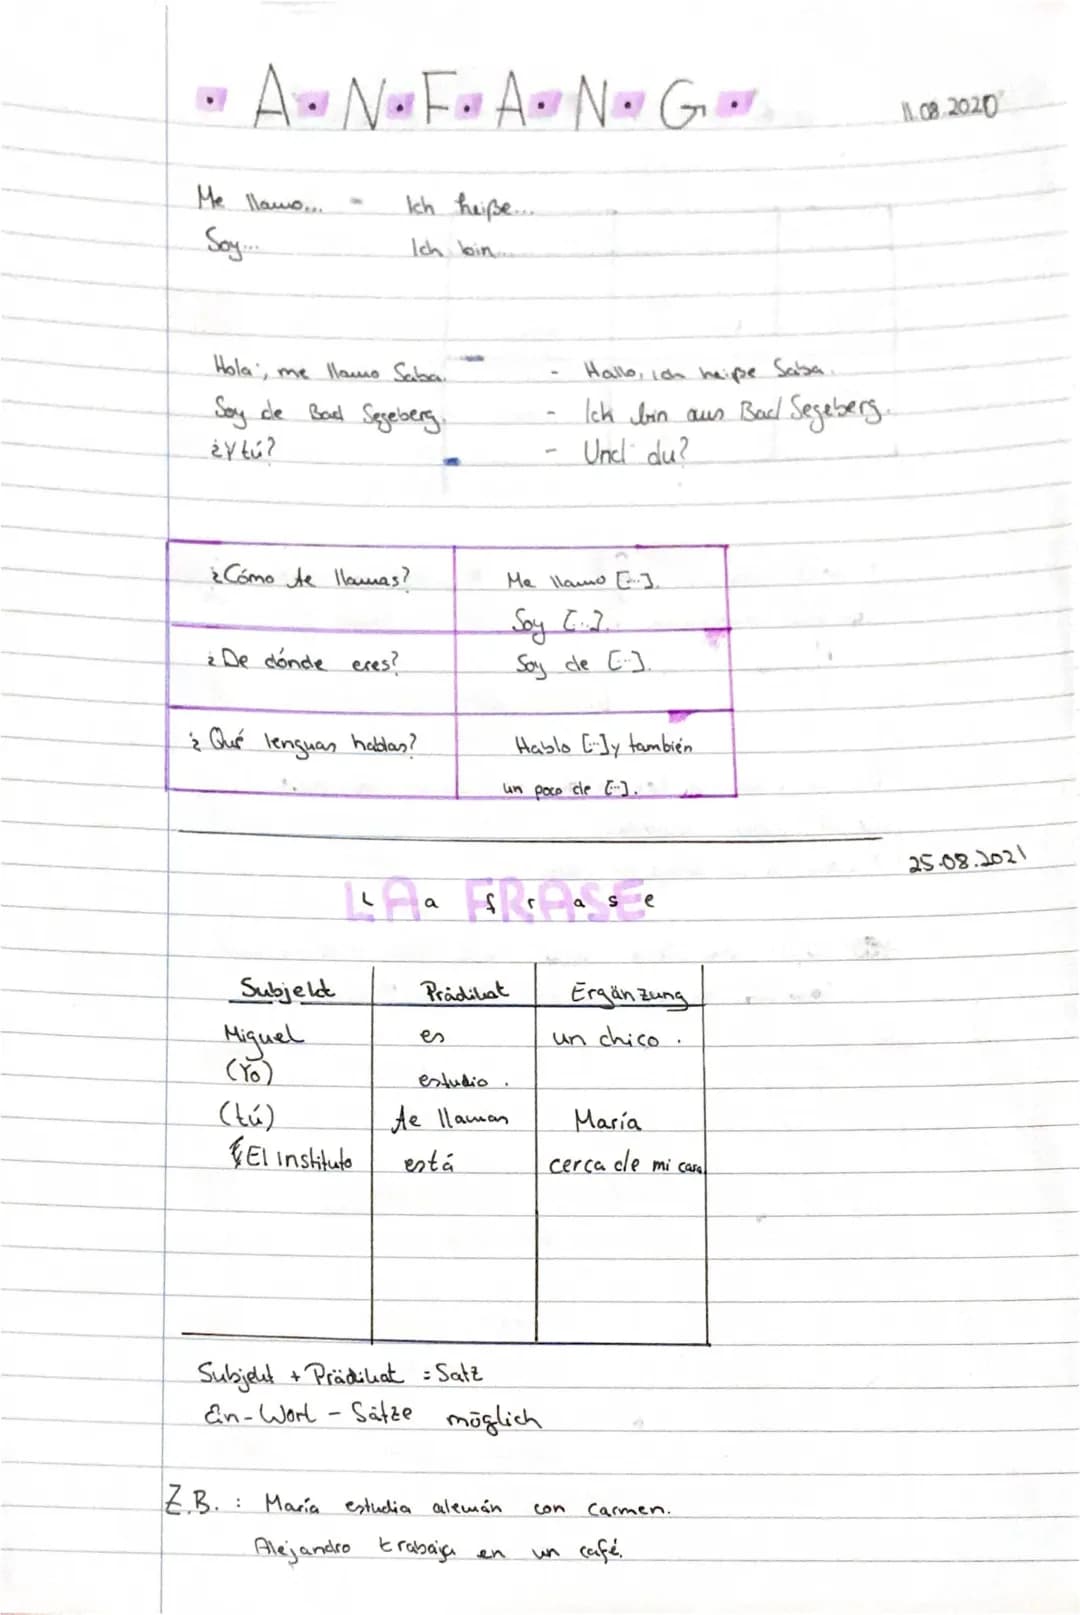 · A · N · F · A · N · G ·
11.08.2020
Me llamo... = Ich heiße...
Soy... Ich bin...
Hola, me llamo Saba. - Hallo, ich heiße Saba.
Soy de Bad Segeberg. - Ich bin aus Bad Segeberg.
¿Y tú? - Und du?
¿Cómo te llamas? Me llamo [...].
Soy [...].
¿De dónde eres? Soy de [...].
¿Qué lenguas hablas? Hablo [...] y también
un poco de [...].
25.08.2021
LA FRASE
La frase
Subjekt Prädikat Ergänzung
Miguel es un chico.
(Yo) estudio.
(tú) te llamas María
El instituto está cerca de mi casa
Subjekt + Prädikat = Satz
Ein-Wort-Sätze möglich
Z.B.: María estudia alemán con Carmen.
Alejandro trabaja en un café.